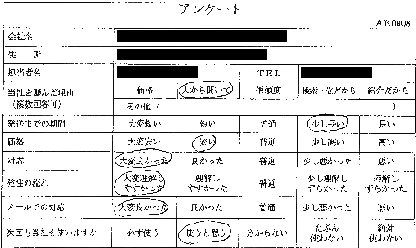 アンケート
会社名
住　所
担当者名　TEL
当社を選んだ理由　価格　人から聞いて　信頼度
(複数回答可)
その他 (　)
発送までの期間　大変早い　早い　普通　少し遅い　遅い
価格　大変安い　安い　普通　少し高い　高い
対応　大変よかった　良かった　普通　少し悪かった　悪い
大変理解し　理解し　普通　少し理解し　理解し
やすかった　やすかった　づらかった　づらかった
メールでの対応　大変良かった　良かった　普通　少し悪かった　悪い
次回も当社を使いますか　必ず使う　使うと思う　分からない　たぶん　絶対
使わない　使わない